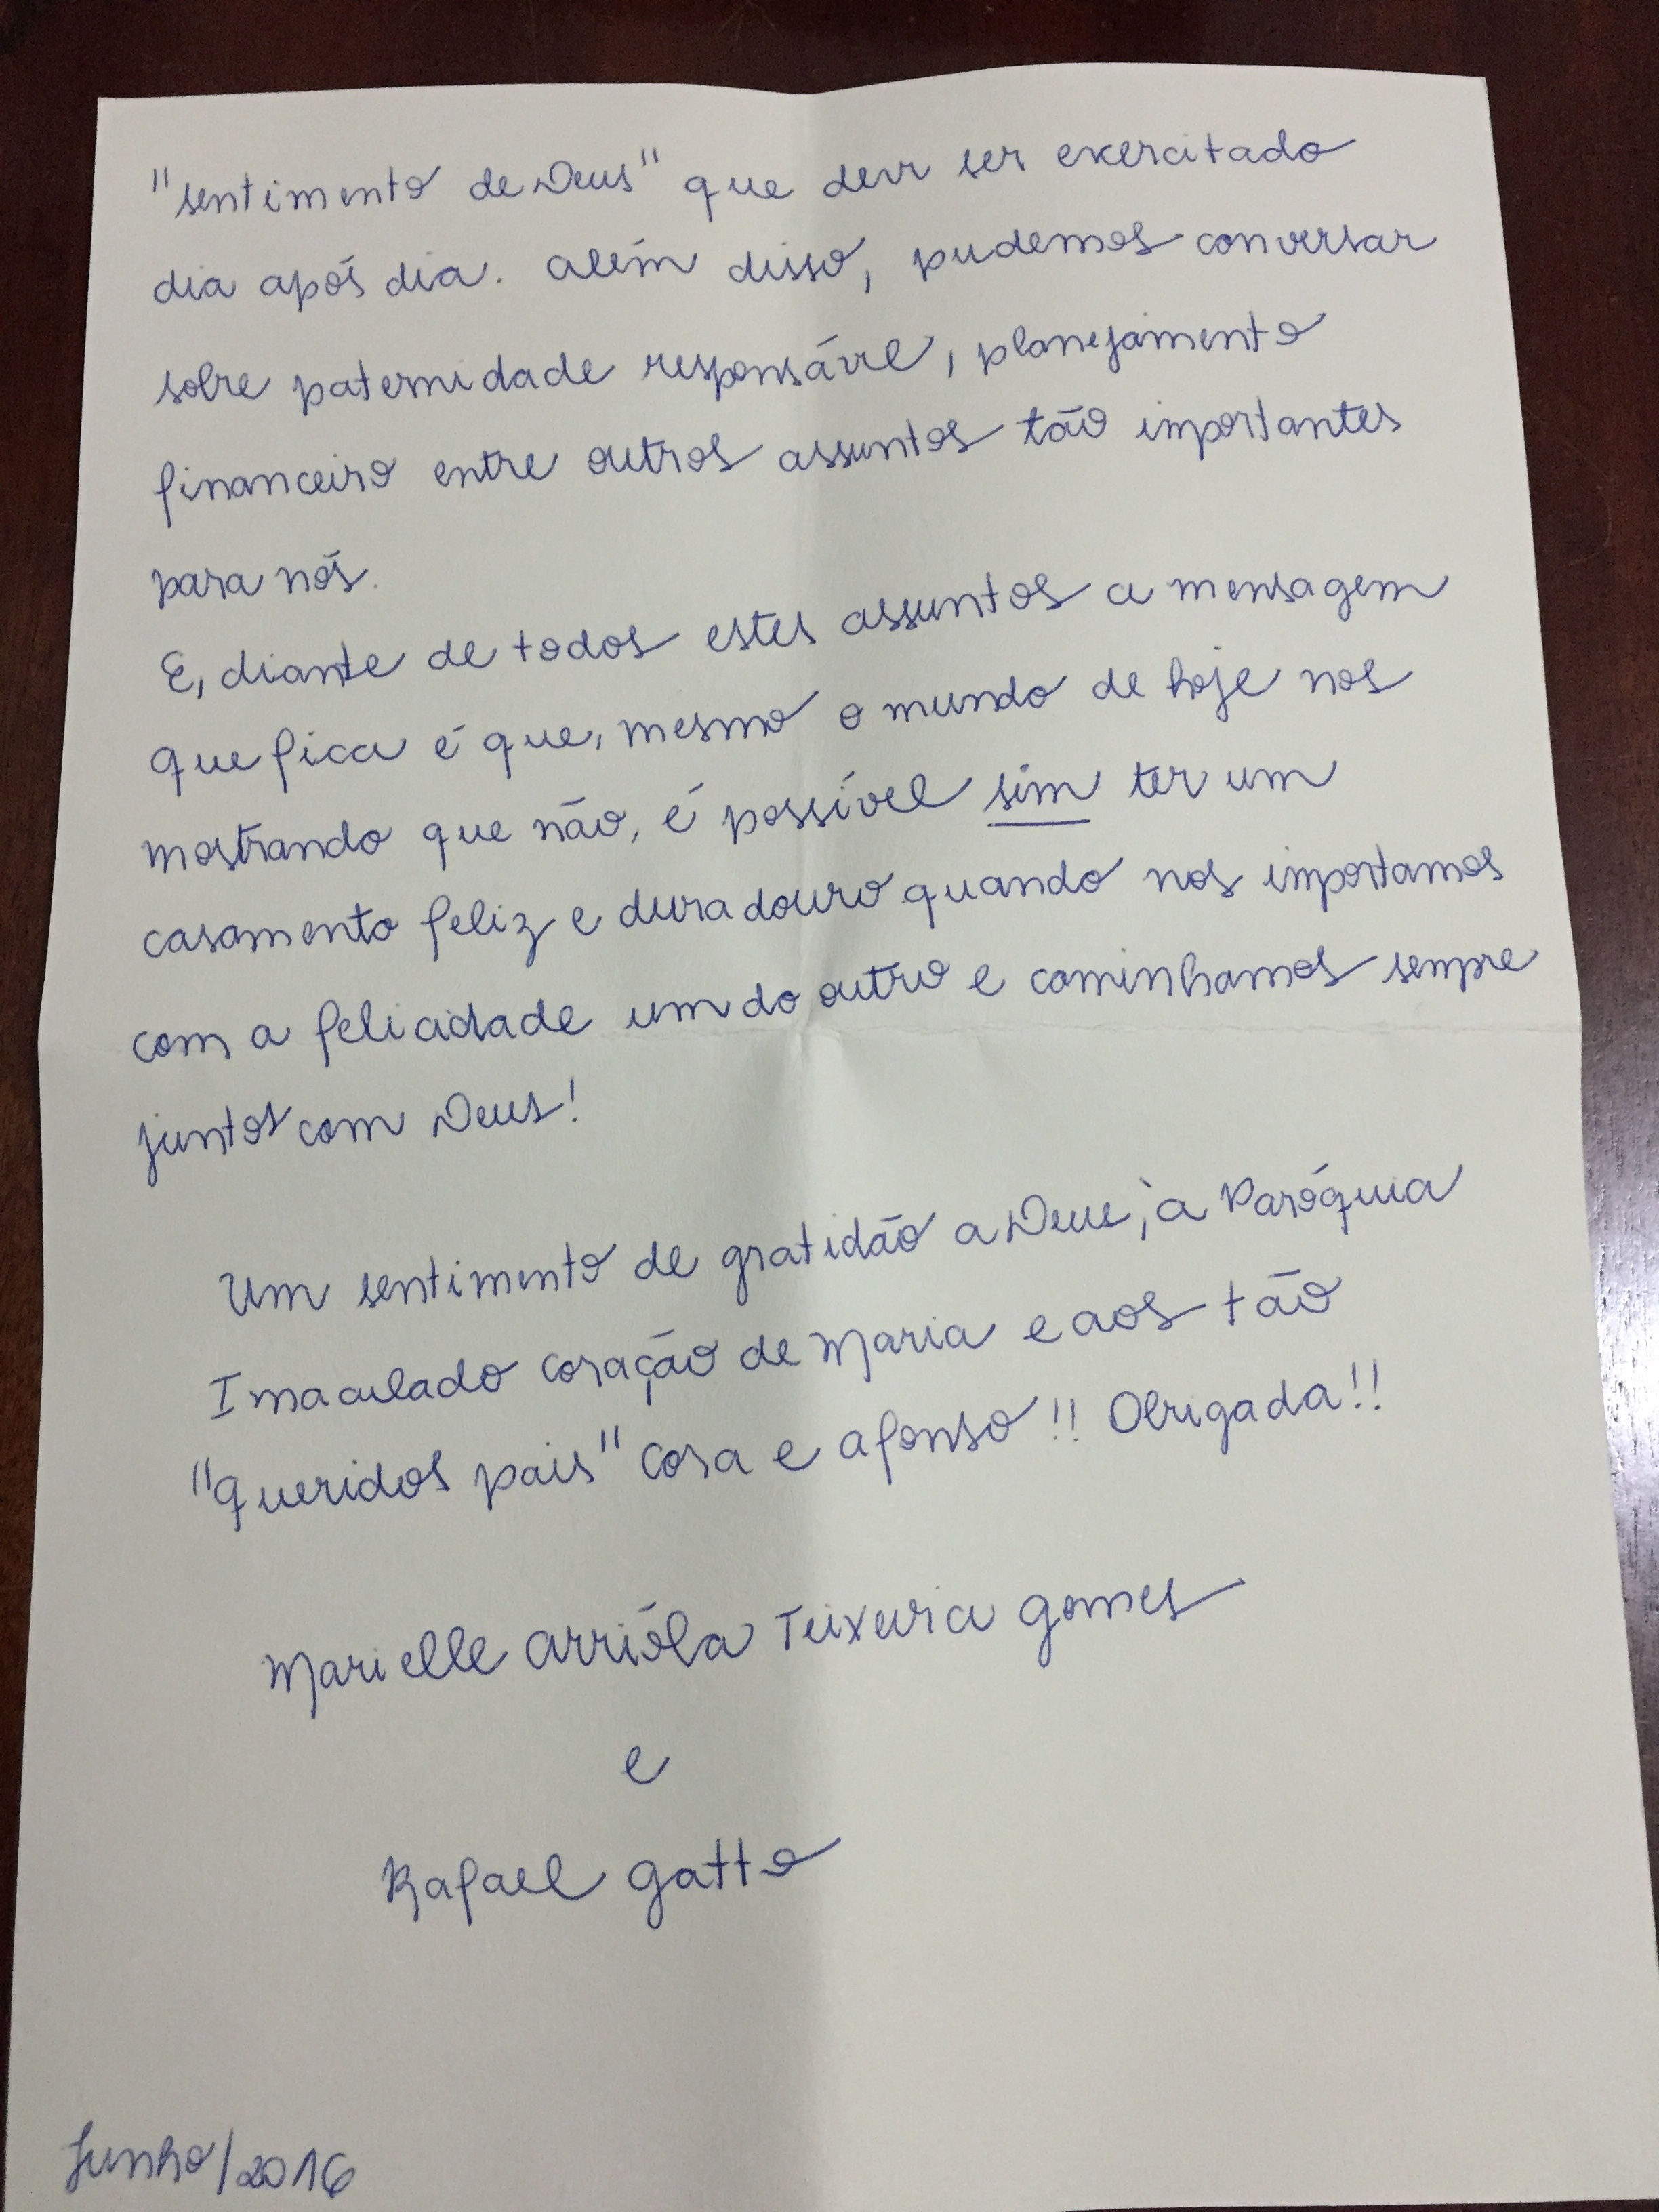 "sentimento de Deus" que deve ser exercitado
dia após dia. Além disso, pudemos conversar
sobre paternidade responsável, planejamento
financeiro entre outros assuntos tão importantes
para nós.
E, diante de todos estes assuntos a mensagem
que fica é que, mesmo o mundo de hoje nos
mostrando que não, é possível sim ter um
casamento feliz e duradouro quando nos importamos
com a felicidade um do outro e caminhamos sempre
juntos com Deus!
Um sentimento de gratidão a Deus, à Paróquia
Imaculado coração de Maria e aos tão
"queridos pais" Cora e Afonso!! Obrigada!!
Marielle Arrióla Teixeira Gomes
e
Rafael Gatto
Junho/2016